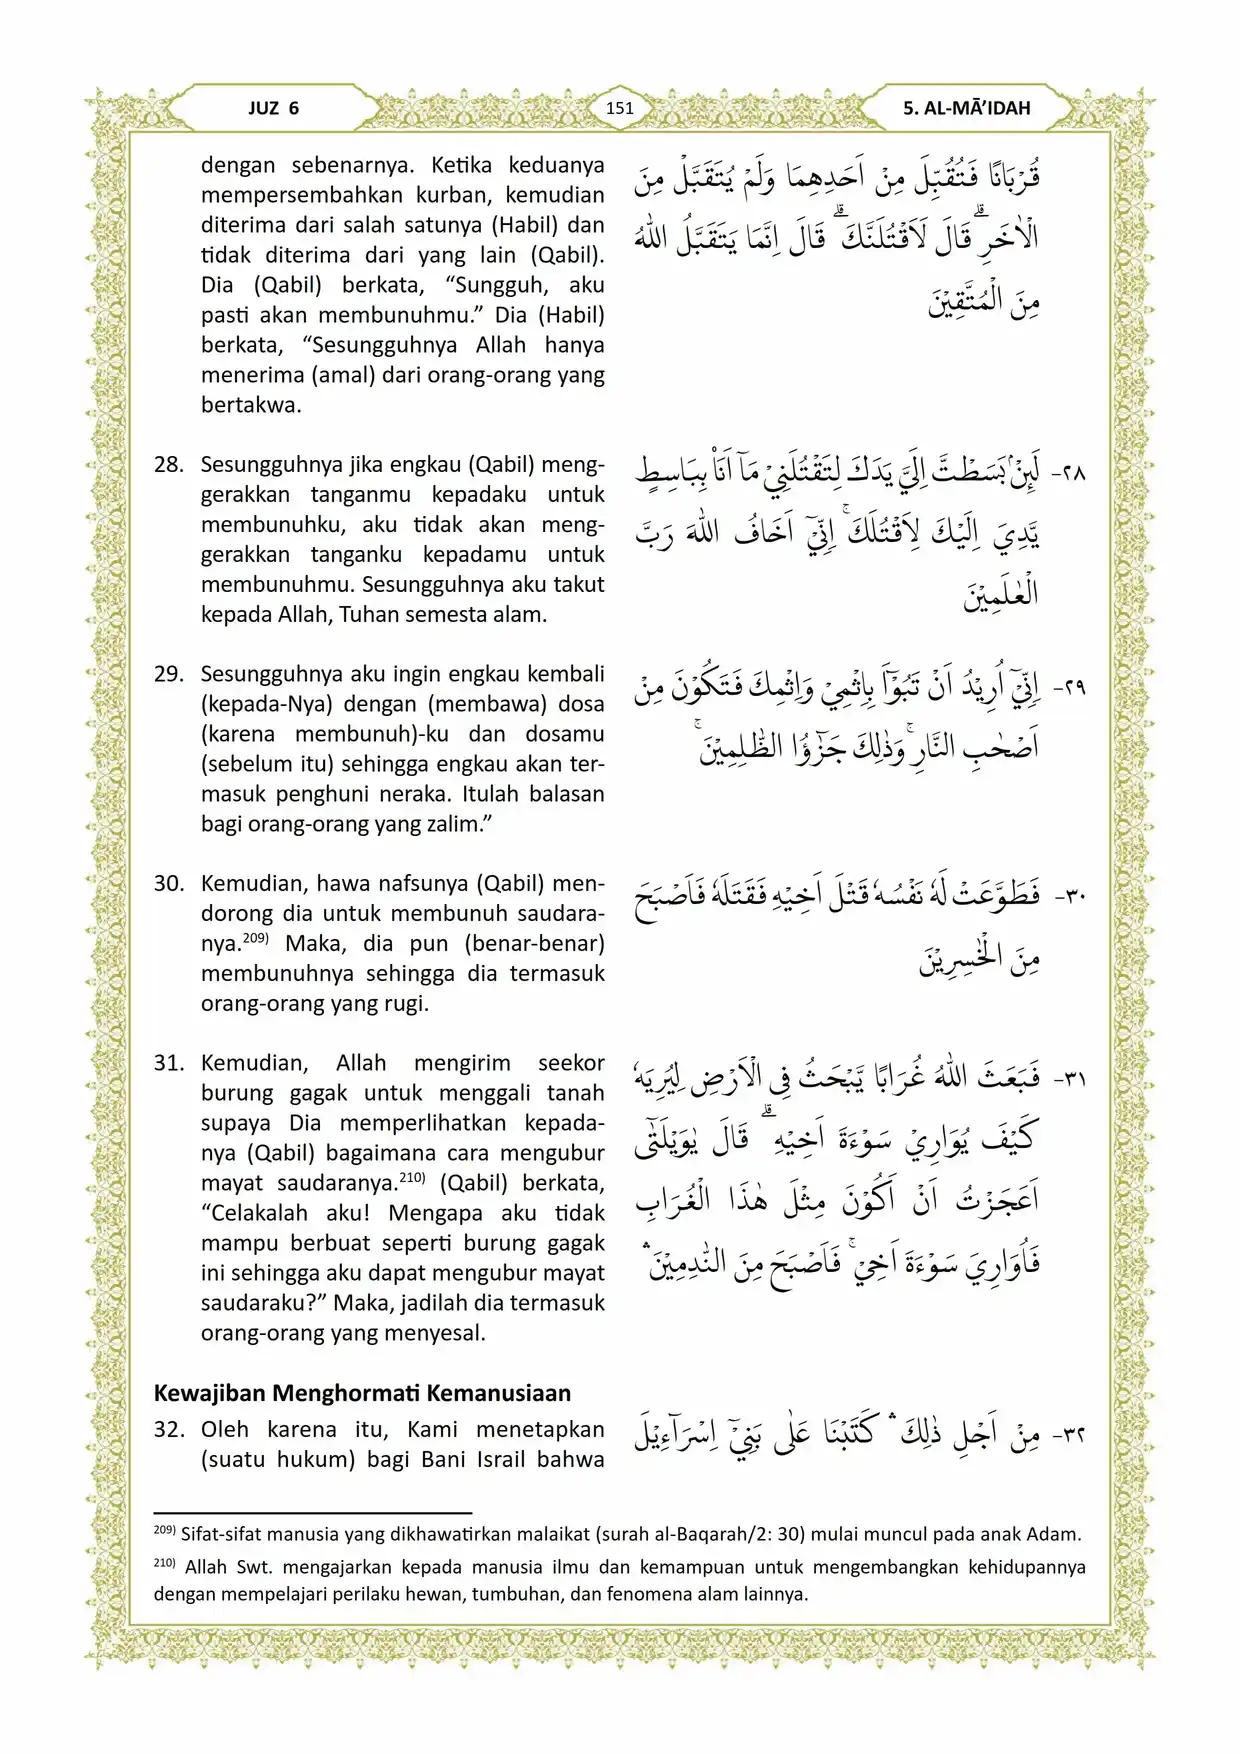 JUZ 6
151
5. AL-MĀ’IDAH
dengan sebenarnya. Ketika keduanya
mempersembahkan kurban, kemudian
diterima dari salah satunya (Habil) dan
tidak diterima dari yang lain (Qabil).
Dia (Qabil) berkata, “Sungguh, aku
pasti akan membunuhmu.” Dia (Habil)
berkata, “Sesungguhnya Allah hanya
menerima (amal) dari orang-orang yang
bertakwa.
قُرْبَانًا فَتُقُبِّلَ مِنْ اَحَدِهِمَا وَلَمْ يُتَقَبَّلْ مِنَ
الْاٰخَرِۗ قَالَ لَاَقْتُلَنَّكَ ۗ قَالَ اِنَّمَا يَتَقَبَّلُ اللّٰهُ
مِنَ الْمُتَّقِيْنَ
28. Sesungguhnya jika engkau (Qabil) meng-
gerakkan tanganmu kepadaku untuk
membunuhku, aku tidak akan meng-
gerakkan tanganku kepadamu untuk
membunuhmu. Sesungguhnya aku takut
kepada Allah, Tuhan semesta alam.
٢٨- لَىِٕنْۢ بَسَطْتَّ اِلَيَّ يَدَكَ لِتَقْتُلَنِيْ مَآ اَنَا۠ بِبَاسِطٍ
يَّدِيَ اِلَيْكَ لِاَقْتُلَكَۚ اِنِّيْٓ اَخَافُ اللّٰهَ رَبَّ
الْعٰلَمِيْنَ
29. Sesungguhnya aku ingin engkau kembali
(kepada-Nya) dengan (membawa) dosa
(karena membunuh)-ku dan dosamu
(sebelum itu) sehingga engkau akan ter-
masuk penghuni neraka. Itulah balasan
bagi orang-orang yang zalim.”
٢٩- اِنِّيْٓ اُرِيْدُ اَنْ تَبُوْۤاَ بِاِثْمِيْ وَاِثْمِكَ فَتَكُوْنَ مِنْ
اَصْحٰبِ النَّارِۚ وَذٰلِكَ جَزٰۤؤُا الظّٰلِمِيْنَۚ
30. Kemudian, hawa nafsunya (Qabil) men-
dorong dia untuk membunuh saudara-
nya.209) Maka, dia pun (benar-benar)
membunuhnya sehingga dia termasuk
orang-orang yang rugi.
٣٠- فَطَوَّعَتْ لَهٗ نَفْسُهٗ قَتْلَ اَخِيْهِ فَقَتَلَهٗ فَاَصْبَحَ
مِنَ الْخٰسِرِيْنَ
31. Kemudian, Allah mengirim seekor
burung gagak untuk menggali tanah
supaya Dia memperlihatkan kepada-
nya (Qabil) bagaimana cara mengubur
mayat saudaranya.210) (Qabil) berkata,
“Celakalah aku! Mengapa aku tidak
mampu berbuat seperti burung gagak
ini sehingga aku dapat mengubur mayat
saudaraku?” Maka, jadilah dia termasuk
orang-orang yang menyesal.
٣١- فَبَعَثَ اللّٰهُ غُرَابًا يَّبْحَثُ فِى الْاَرْضِ لِيُرِيَهٗ
كَيْفَ يُوَارِيْ سَوْءَةَ اَخِيْهِ ۗ قَالَ يٰوَيْلَتٰٓى
اَعَجَزْتُ اَنْ اَكُوْنَ مِثْلَ هٰذَا الْغُرَابِ
فَاُوَارِيَ سَوْءَةَ اَخِيْۚ فَاَصْبَحَ مِنَ النّٰدِمِيْنَ ۛ
Kewajiban Menghormati Kemanusiaan
32. Oleh karena itu, Kami menetapkan
(suatu hukum) bagi Bani Israil bahwa
٣٢- مِنْ اَجْلِ ذٰلِكَ ۛ كَتَبْنَا عَلٰى بَنِيْٓ اِسْرَاۤءِيْلَ
209) Sifat-sifat manusia yang dikhawatirkan malaikat (surah al-Baqarah/2: 30) mulai muncul pada anak Adam.
210) Allah Swt. mengajarkan kepada manusia ilmu dan kemampuan untuk mengembangkan kehidupannya
dengan mempelajari perilaku hewan, tumbuhan, dan fenomena alam lainnya.